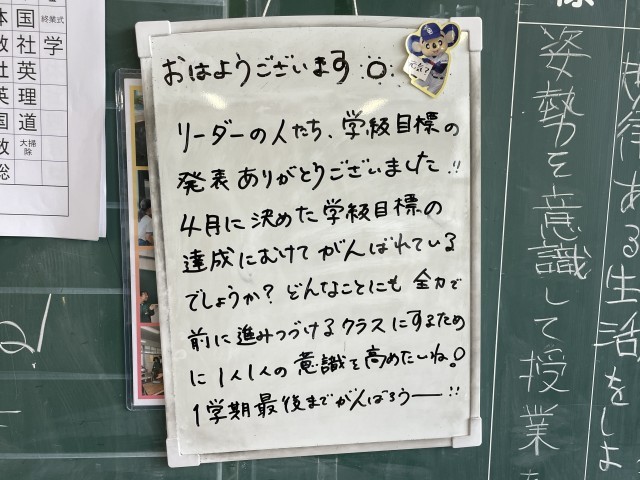 おはようございます
リーダーの人たち、学級目標の
発表ありがとうございました!!
4月に決めた学級目標の
達成にむけてがんばれている
でしょうか? どんなことにも全力で
前に進みつづけるクラスにするため
に1人1人の意識を高めたいね!
1学期最後までがんばろうー!!
姿勢を意識して授業を
ある生活をしよ
国 終業式
社 学
英
理
道
大掃除
総